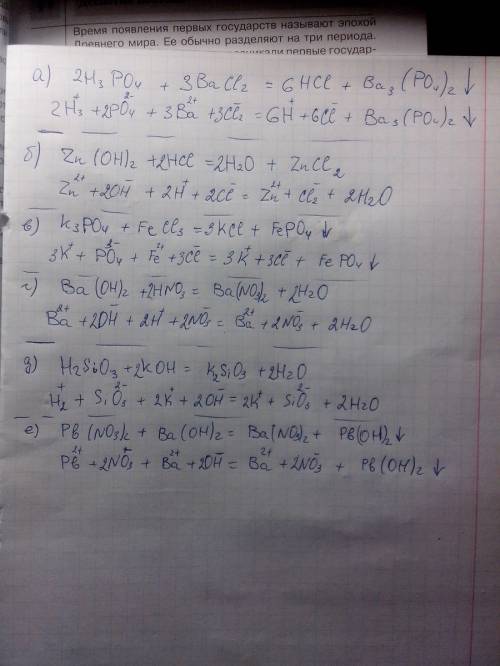 Время появления первых государств называют эпохой
Древнего мира. Ее обычно разделяют на три периода.
никали первые государ-
а) 2H₃PO₄ + 3BaCl₂ = 6HCl + Ba₃(PO₄)₂↓
2H₃⁺ + 2PO₄²⁻ + 3Ba²⁺ + 3Cl₂⁻ = 6H⁺ + 6Cl⁻ + Ba₃(PO₄)₂↓
б) Zn(OH)₂ + 2HCl = 2H₂O + ZnCl₂
Zn²⁺ + 2OH⁻ + 2H⁺ + 2Cl⁻ = Zn²⁺ + Cl₂⁻ + 2H₂O
в) K₃PO₄ + FeCl₃ = 3KCl + FePO₄↓
3K⁺ + PO₄³⁻ + Fe²⁺ + 3Cl⁻ = 3K⁺ + 3Cl⁻ + FePO₄↓
г) Ba(OH)₂ + 2HNO₃ = Ba(NO₃)₂ + 2H₂O
Ba²⁺ + 2OH⁻ + 2H⁺ + 2NO₃⁻ = Ba²⁺ + 2NO₃⁻ + 2H₂O
д) H₂SiO₃ + 2KOH = K₂SiO₃ + 2H₂O
H₂⁺ + SiO₃²⁻ + 2K⁺ + 2OH⁻ = 2K⁺ + SiO₃²⁻ + 2H₂O
е) Pb(NO₃)₂ + Ba(OH)₂ = Ba(NO₃)₂ + Pb(OH)₂↓
Pb²⁺ + 2NO₃⁻ + Ba²⁺ + 2OH⁻ = Ba²⁺ + 2NO₃⁻ + Pb(OH)₂↓